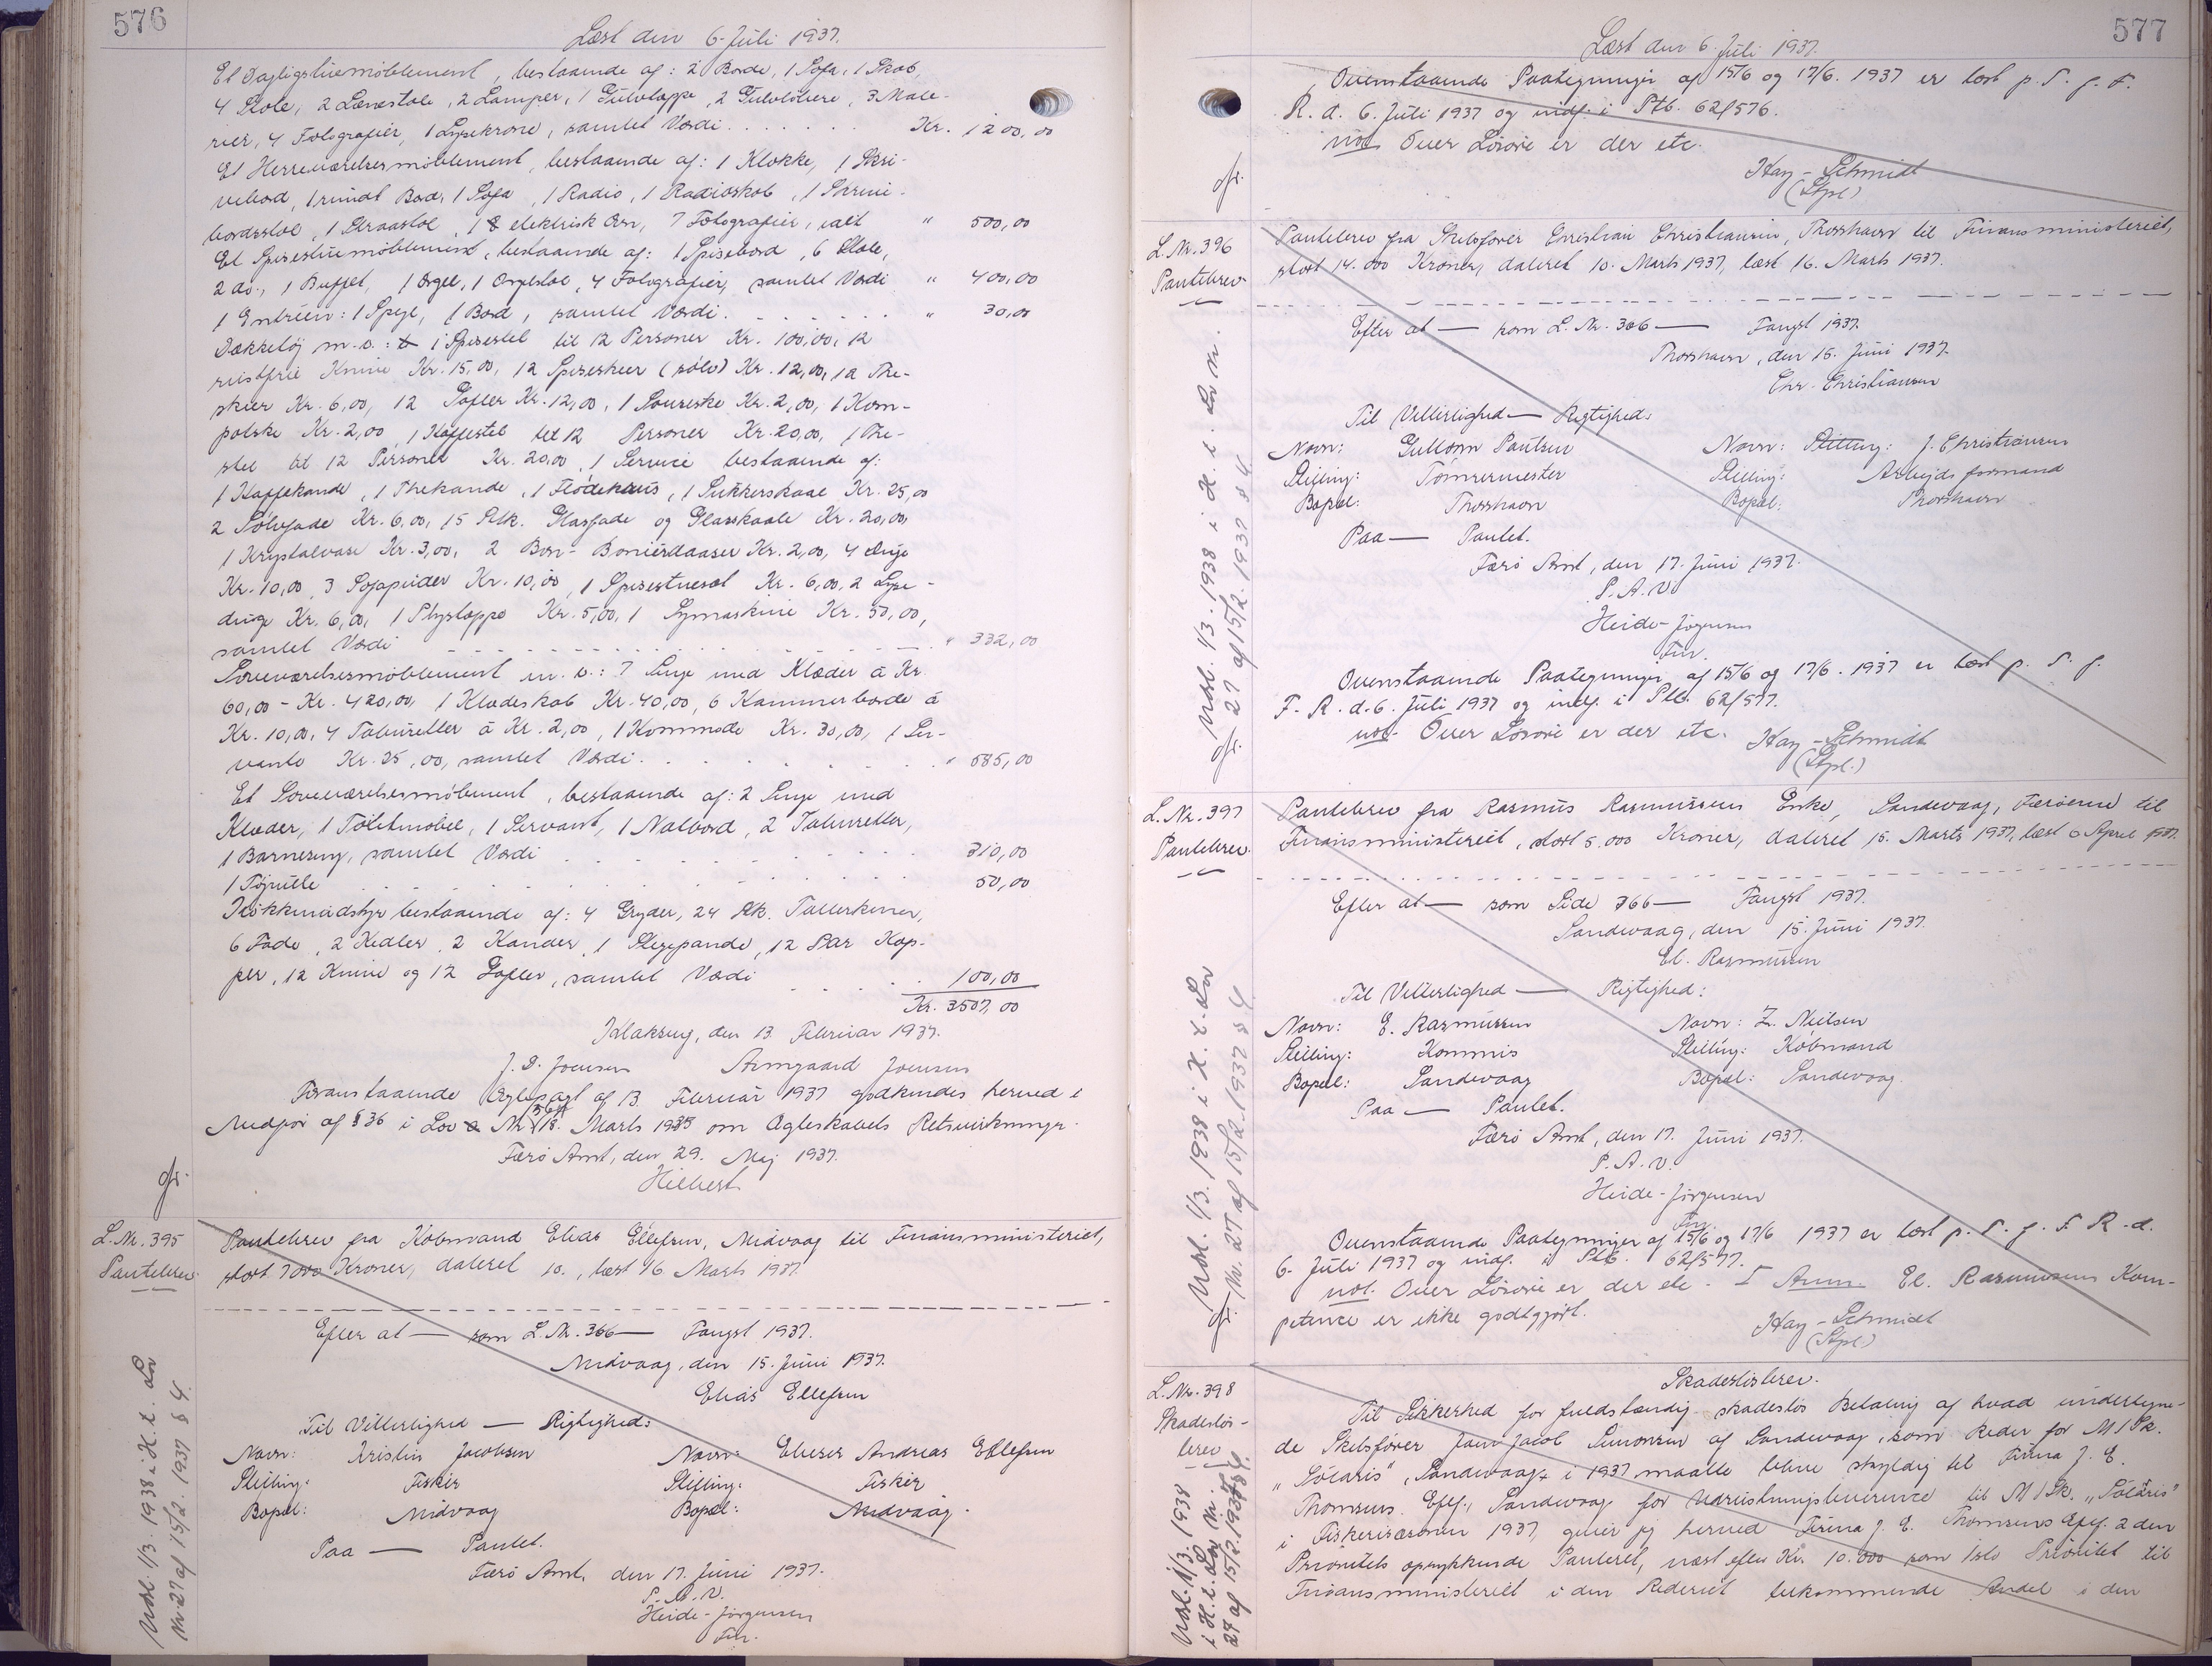 576
Læst den 6. Juli 1937.
Et Dagligstuemøblement, bestaaende af: 2 Borde, 1 Sofa, 1 Skab,
4 Stole, 2 Lænestole, 2 Lamper, 1 Gulvtæppe, 3 Male-
rier, 4 Fotografier, 1 Lysekrone, samlet Værdi . . . . . . Kr. 1200,00
Et Herreværelsesmøblement, bestaaende af: 1 Klokke, 1 Skri-
vebord, 1 rundt Bord, 1 Sofa, 1 Radio, 1 Radioskab, 1 Skrive-
bordsstol, 1 Straastol, 1 elektrisk Ovn, 7 Fotografier, ialt " 500,00
Et Spisestuemøblement, bestaaende af: 1 Spisebord, 6 Stole,
2 do., 1 Buffet, 1 Orgel, 1 Orgelstol, 4 Fotografier, samlet Værdi " 400,00
1 Entréen: 1 Spejl, 1 Bord, samlet Værdi . . . . . . " 30,00
Dækketøj m.v.: 1 Spisestel til 12 Personer Kr. 100,00, 12
rustfrie Knive Kr. 15,00, 12 Spiseskeer (sølv) Kr. 12,00, 12 The-
skeer Kr. 6,00, 12 Gafler Kr. 12,00, 1 Sauceske Kr. 2,00, 1 Kom-
potske Kr. 2,00, 1 Kaffestel til 12 Personer Kr. 20,00, 1 The-
stel til 12 Personer Kr. 20,00, 1 Service bestaaende af:
1 Kaffekande, 1 Thekande, 1 Flødekrus, 1 Sukkerskaal Kr. 25,00
2 Sølvfade Kr. 6,00, 15 Stk. Glasfade og Glasskaale Kr. 20,00,
1 Krystalvase Kr. 3,00, 2 Bon-Bonierdaaser Kr. 2,00, 4 Duge
Kr. 10,00, 3 Sofapuder Kr. 10,00, 1 Spisestuesæt Kr. 6,00, 2 Lyse-
duge Kr. 6,00, 1 Plystæppe Kr. 5,00, 1 Symaskine Kr. 50,00,
samlet Værdi - - - - - - " 332,00
Soveværelsesmøblement m.v.: 7 Senge med Klæder á Kr.
60,00 - Kr. 420,00, 1 Klædeskab Kr. 40,00, 6 Kammerborde á
Kr. 10,00, 4 Taburetter á Kr. 2,00, 1 Kommode Kr. 30,00, 1 Ser-
vante Kr. 25,00, samlet Værdi . . . . . . " 585,00
Et Soveværelsesmøblement, bestaaende af: 2 Senge med
Klæder, 1 Toiletmøbel, 1 Servant, 1 Natbord, 2 Taburetter,
1 Barneseng, samlet Værdi . . . . . . 310,00
1 Tøjrulle . . . . . . 50,00
Køkkenudstyr bestaaende af: 4 Gryder, 24 Stk. Tallerkener,
6 Fade, 2 Kedler, 2 Kander, 1 Stegepande, 12 Par Kop-
per, 12 Knive og 12 Gafler, samlet Værdi . . . . . 100,00
Kr. 3507,00
Klaksvig, den 13. Februar 1937.
J. D. Joensen Armgaard Joensen
Foranstaaende Ægtepagt af 13. Februar 1937 godkendes herved i
Medfør af § 36 i Lov Nr. 18. Marts 1925 om Ægteskabets Retsvirkninger.
Færø Amt, den 29. Maj 1937.
Hilbert
L. Nr. 395
Pantebrev
Pantebrev fra Købmand Elias Ellefsen, Midvaag til Finansministeriet,
stort 7000 Kroner, dateret 10., læst 16. Marts 1937.
Efter at — som L. Nr. 366 — Fangst 1937.
Midvaag, den 15. Juni 1937.
Elias Ellefsen
Til Vitterlighed — Rigtighed:
Navn: Kristin Jacobsen Navn: Elieser Andreas Ellefsen
Stilling: Fisker Stilling: Fisker
Bopæl: Midvaag Bopæl: Midvaag.
Paa — Pantet.
Færø Amt, den 17. Juni 1937.
P. A. V.
Heide-Jørgensen
Fm.
Udsl. 1/3. 1938 i H. t. Lov
Nr. 27 af 15/2. 1937 § 4.
577
Læst den 6. Juli 1937.
Ovenstaaende Paategninger af 15/6 og 17/6. 1937 er læst p. S. f. F.
R. d. 6. Juli 1937 og indf. i Ptb. 62/576.
not. Over Løsøre er der etc.
Hay-Schmidt
(Stpl.)
L. Nr. 396
Pantebrev
Pantebrev fra Skibsfører Christian Christiansen, Thorshavn til Finansministeriet,
stort 14.000 Kroner, dateret 10. Marts 1937, læst 16. Marts 1937.
Efter at — som L. Nr. 366 — Fangst 1937.
Thorshavn, den 15. Juni 1937.
Chr. Christiansen
Til Vitterlighed — Rigtighed:
Navn: Guttorm Poulsen Navn: J. Christiansen
Stilling: Tømrermester Stilling: Arbejdsformand
Bopæl: Thorshavn Bopæl: Thorshavn
Paa — Pantet.
Færø Amt, den 17. Juni 1937.
P. A. V.
Heide-Jørgensen
Fm.
Ovenstaaende Paategninger af 15/6 og 17/6. 1937 er læst p. S. f.
F. R. d. 6. Juli 1937 og indf. i Ptb. 62/577.
not. Over Løsøre er der etc. Hay-Schmidt
(Stpl.)
Udsl. 1/3. 1938 i H. t. Lov Nr.
27 af 15/2. 1937 § 4
L. Nr. 397
Pantebrev
Pantebrev fra Rasmus Rasmussens Enke, Sandevaag, Færøerne til
Finansministeriet, stort 5.000 Kroner, dateret 15. Marts 1937, læst 6 April 1937.
Efter at — som Side 366 — Fangst 1937.
Sandevaag, den 15. Juni 1937.
El. Rasmussen
Til Vitterlighed — Rigtighed:
Navn: E. Rasmussen Navn: Z. Nielsen
Stilling: Kommis Stilling: Købmand
Bopæl: Sandevaag Bopæl: Sandevaag.
Paa — Pantet.
Færø Amt, den 17. Juni 1937.
P. A. V.
Heide-Jørgensen
Fm.
Ovenstaaende Paategninger af 15/6 og 17/6 1937 er læst p. S. f. F. R. d.
6. Juli 1937 og indf. i Ptb. 62/577.
not. Over Løsøre er der etc. - El. Rasmussens Kom-
petence er ikke godtgjort.
Hay-Schmidt
(Stpl.)
Udsl. 1/3. 1938 i H. t. Lov
Nr. 27 af 15/2. 1937 § 4.
L. Nr. 398
Skadesløs-
brev
Skadesløsbrev.
Til Sikkerhed for fuldstændig skadesløs Betaling af hvad undertegne-
de Skibsfører Jacob Simonsen af Sandevaag, som Reder for M/Sk.
"Solaris", Sandevaag i 1937 maatte blive skyldig til Firma J. E.
Thomsens Eftf., Sandevaag for Udrustningsleverance til M/Sk. "Solaris"
i Fiskerisæsonen 1937, giver jeg herved Firma J. E. Thomsens Eftf. 2den
Prioritets oprykkende Panteret, næst efter Kr. 10.000 som 1ste Prioritet til
Finansministeriet i den Rederiet tilkommende Andel i den
Udsl. 1/3. 1938
i H. t. Lov Nr.
27 af 15/2. 1937 § 4.